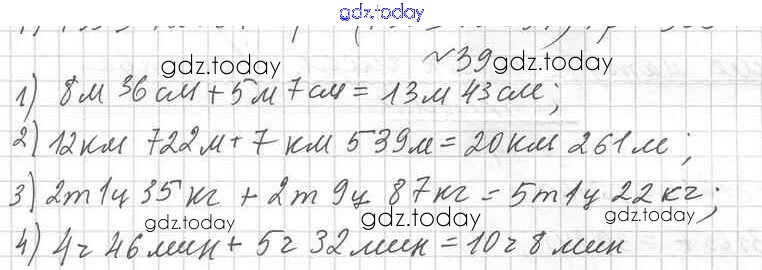 gdz.today
№39
gdz.today gdz.today
1) 8м 36см + 5м 7см = 13м 43см;
2) 12км 722м + 7км 539м = 20км 261м;
3) 2т 1ц 35кг + 2т 9ц 87кг = 5т 1ц 22кг;
gdz.today gdz.today gdz.today
4) 4ч 46мин + 5ч 32мин = 10ч 8мин